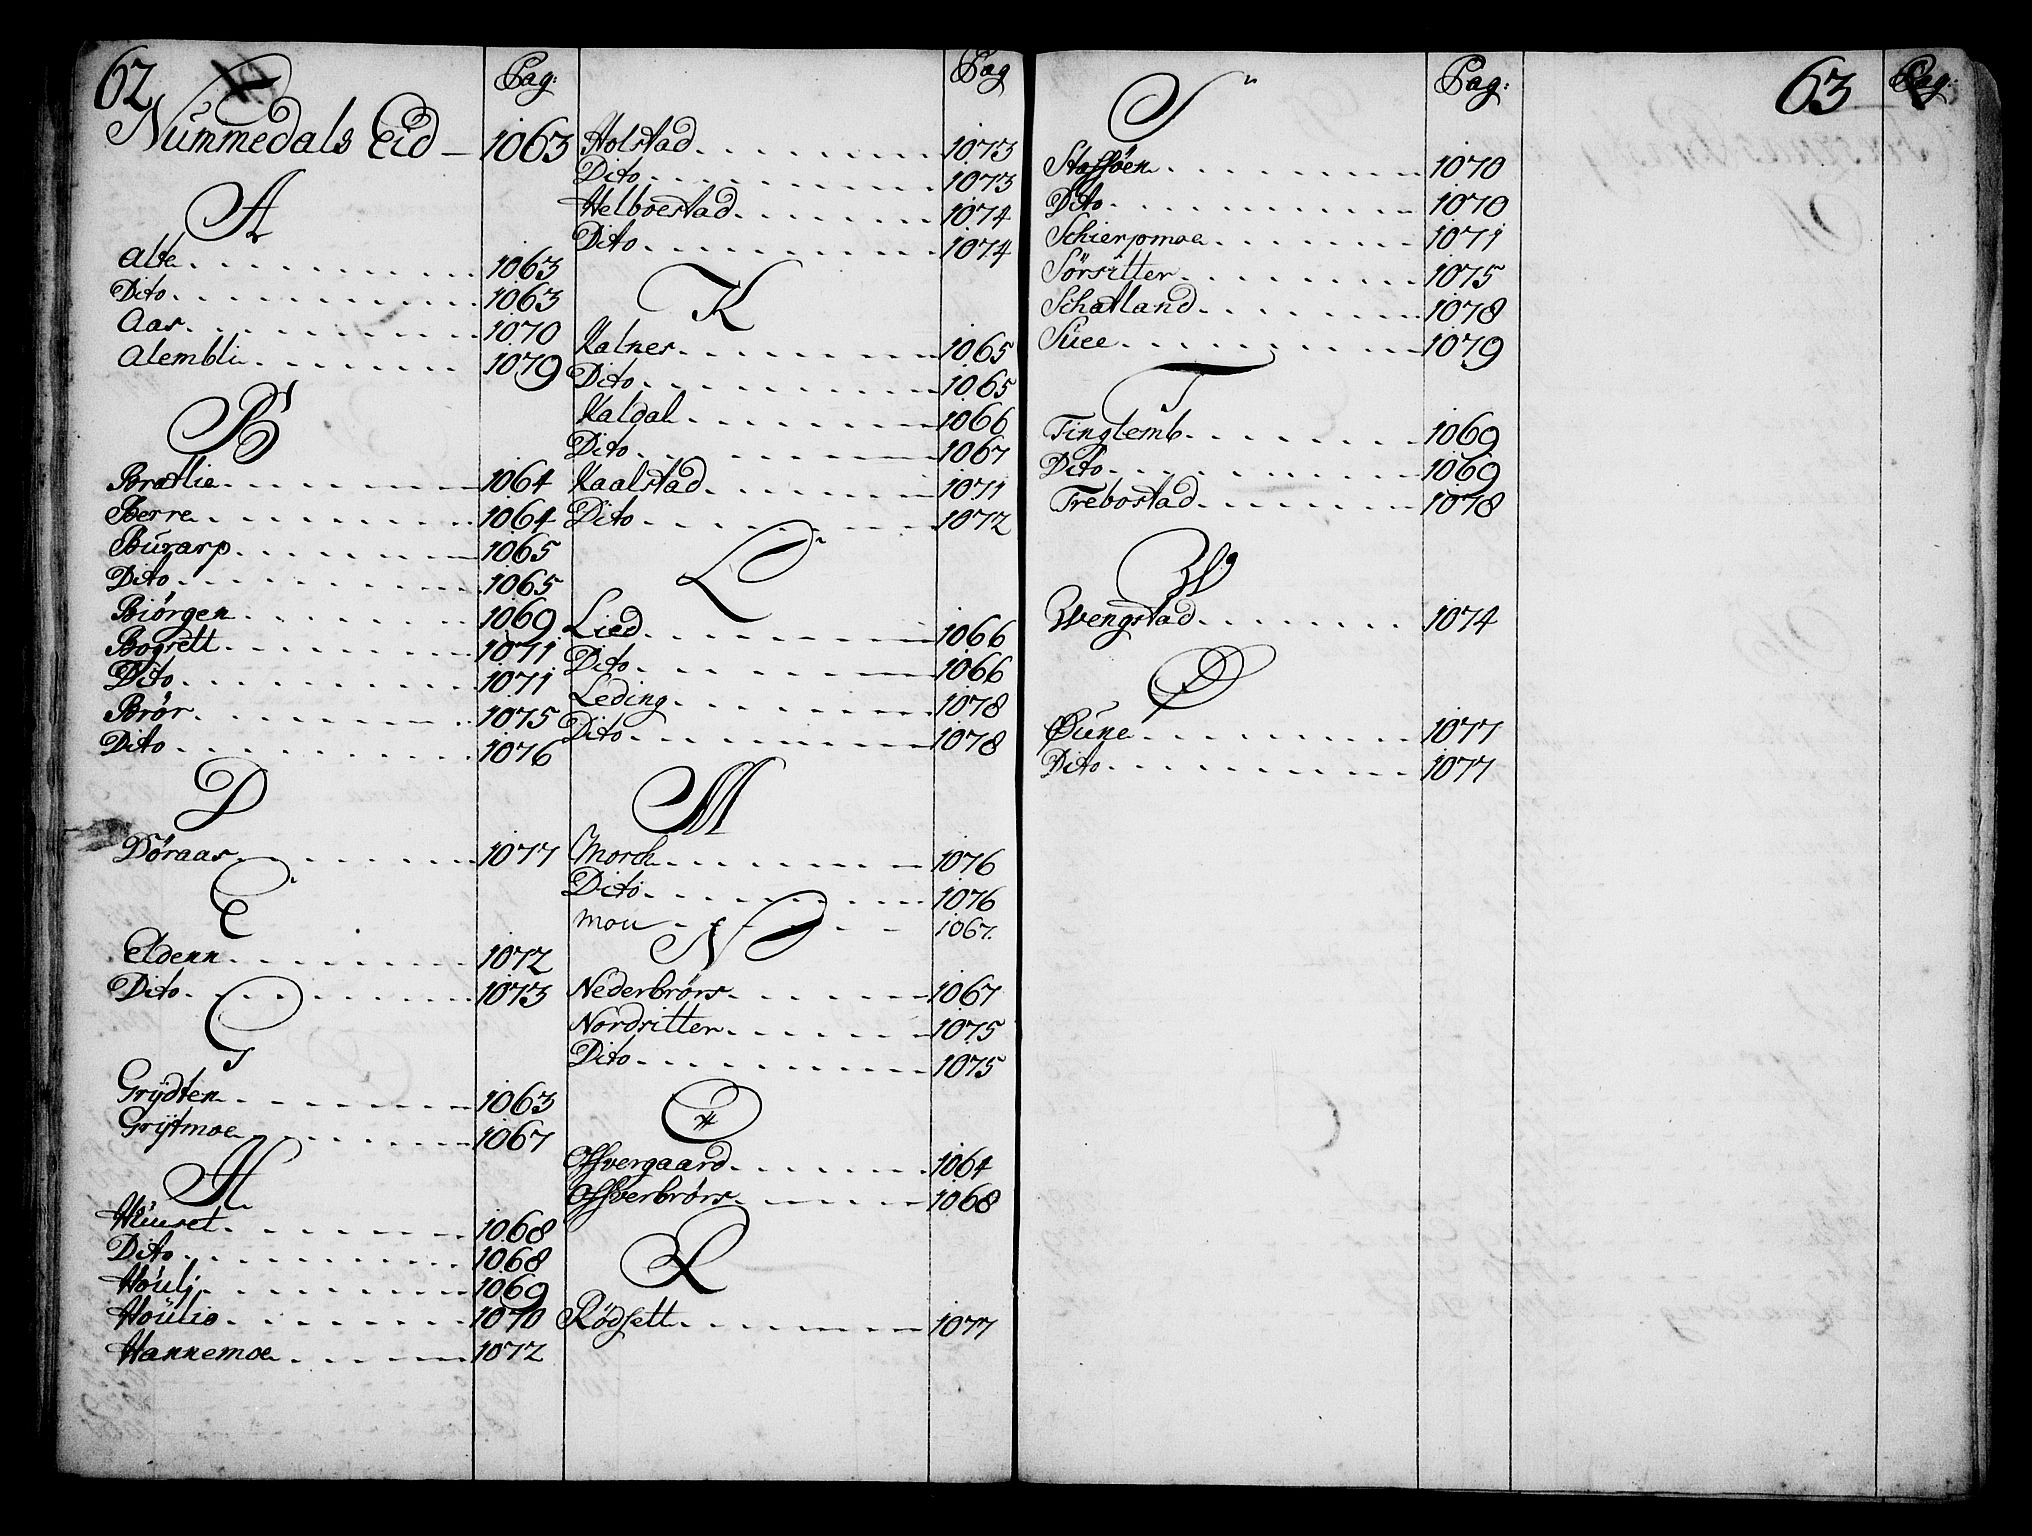 62
Pag:
Nummedals Eid 1063
A
Alte 1063
Dito 1063
Aas 1070
Alembli 1079
B
Bratlie 1064
Berre 1064
Burarp 1065
Dito 1065
Biörgen 1069
Bogsett 1071
Dito 1071
Brör 1075
Dito 1076
D
Döraas 1077
E
Eldenn 1072
Dito 1073
G
Grÿdten 1063
Grÿtmoe 1067
H
Huuset 1068
Dito 1068
Höulj 1069
Höulie 1070
Hannemoe 1072
Pag
Holstad 1073
Dito 1073
Helboestad 1074
Dito 1074
K
Kalnes 1065
Dito 1065
Kaldal 1066
Dito 1067
Kaalstad 1071
Dito 1072
L
Lied 1066
Dito 1066
Leding 1078
Dito 1078
M
Morch 1076
Dito 1076
Mou 1067.
N
Nederbrörs 1067
Nordsitter 1075
Dito 1075
O
Offvergaard 1064
Offverbrörs 1068
R
Rödsett 1077
Pag:
63
Pag:
S
Stafföen 1070
Dito 1070
Schierpmoe 1071
Sörsitter 1075
Schatland 1078
Suee 1079
T
Tinglemb 1069
Dito 1069
Trebostad 1078
W
Wengstad 1074
Ø
Øune 1077
Dito 1077